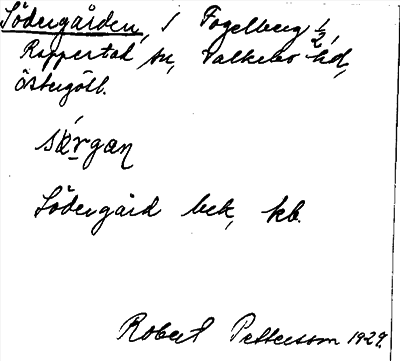 Södergården, i Fogelberg 1/2,
Rappestad sn, Valkebo hd,
Östergötl.
särgan
Södergård bek, kb.
Robert Pettersson 1929.